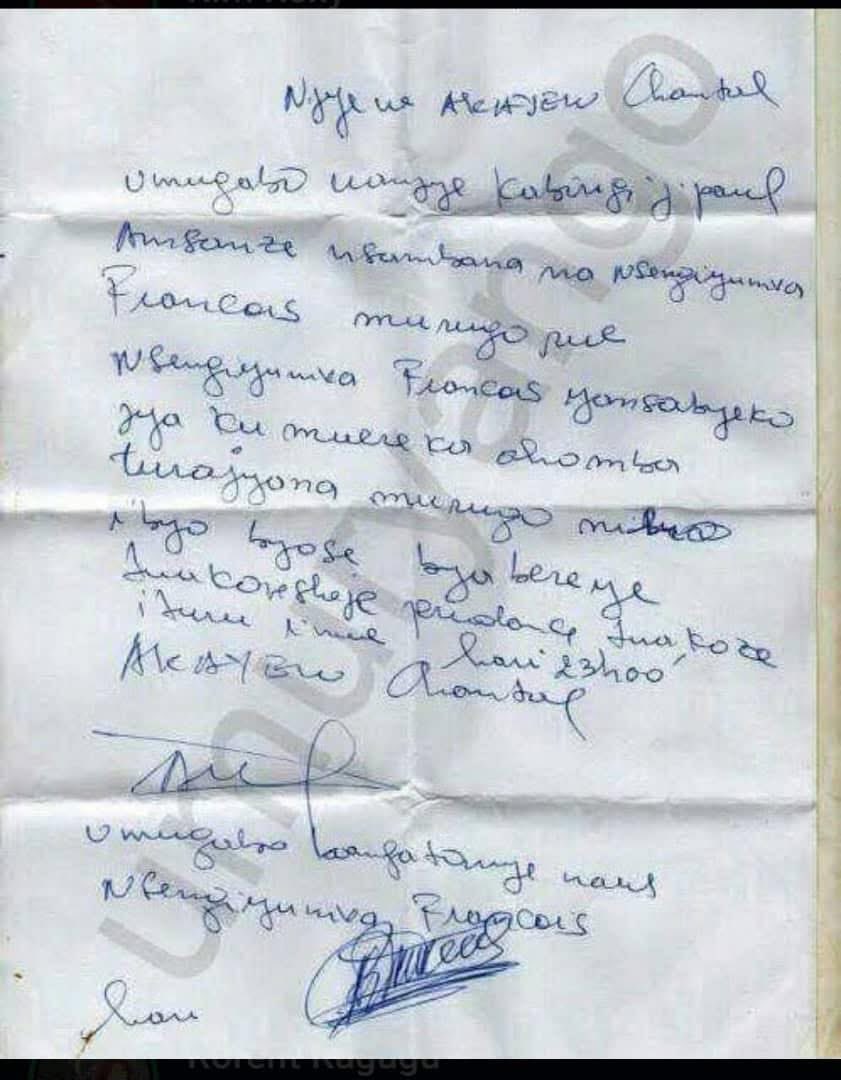 Njyewe AKAYEZU Chantal
umugabo wanjye Kabingi j. paul
Ansanze nsambana na Nsengiyumva
Francois murugo rwe
Nsengiyumva Francois yansabyeko
jya ku mwereka ahomba
turajyana murugo
ibyo byose byabereye
twakoresheje prudence twakoze
ituru imwe hari 23h00
AKAYEZU Chantal
umugabo wamfatanye nawe
Nsengiyumva Francois
hari
umuryango